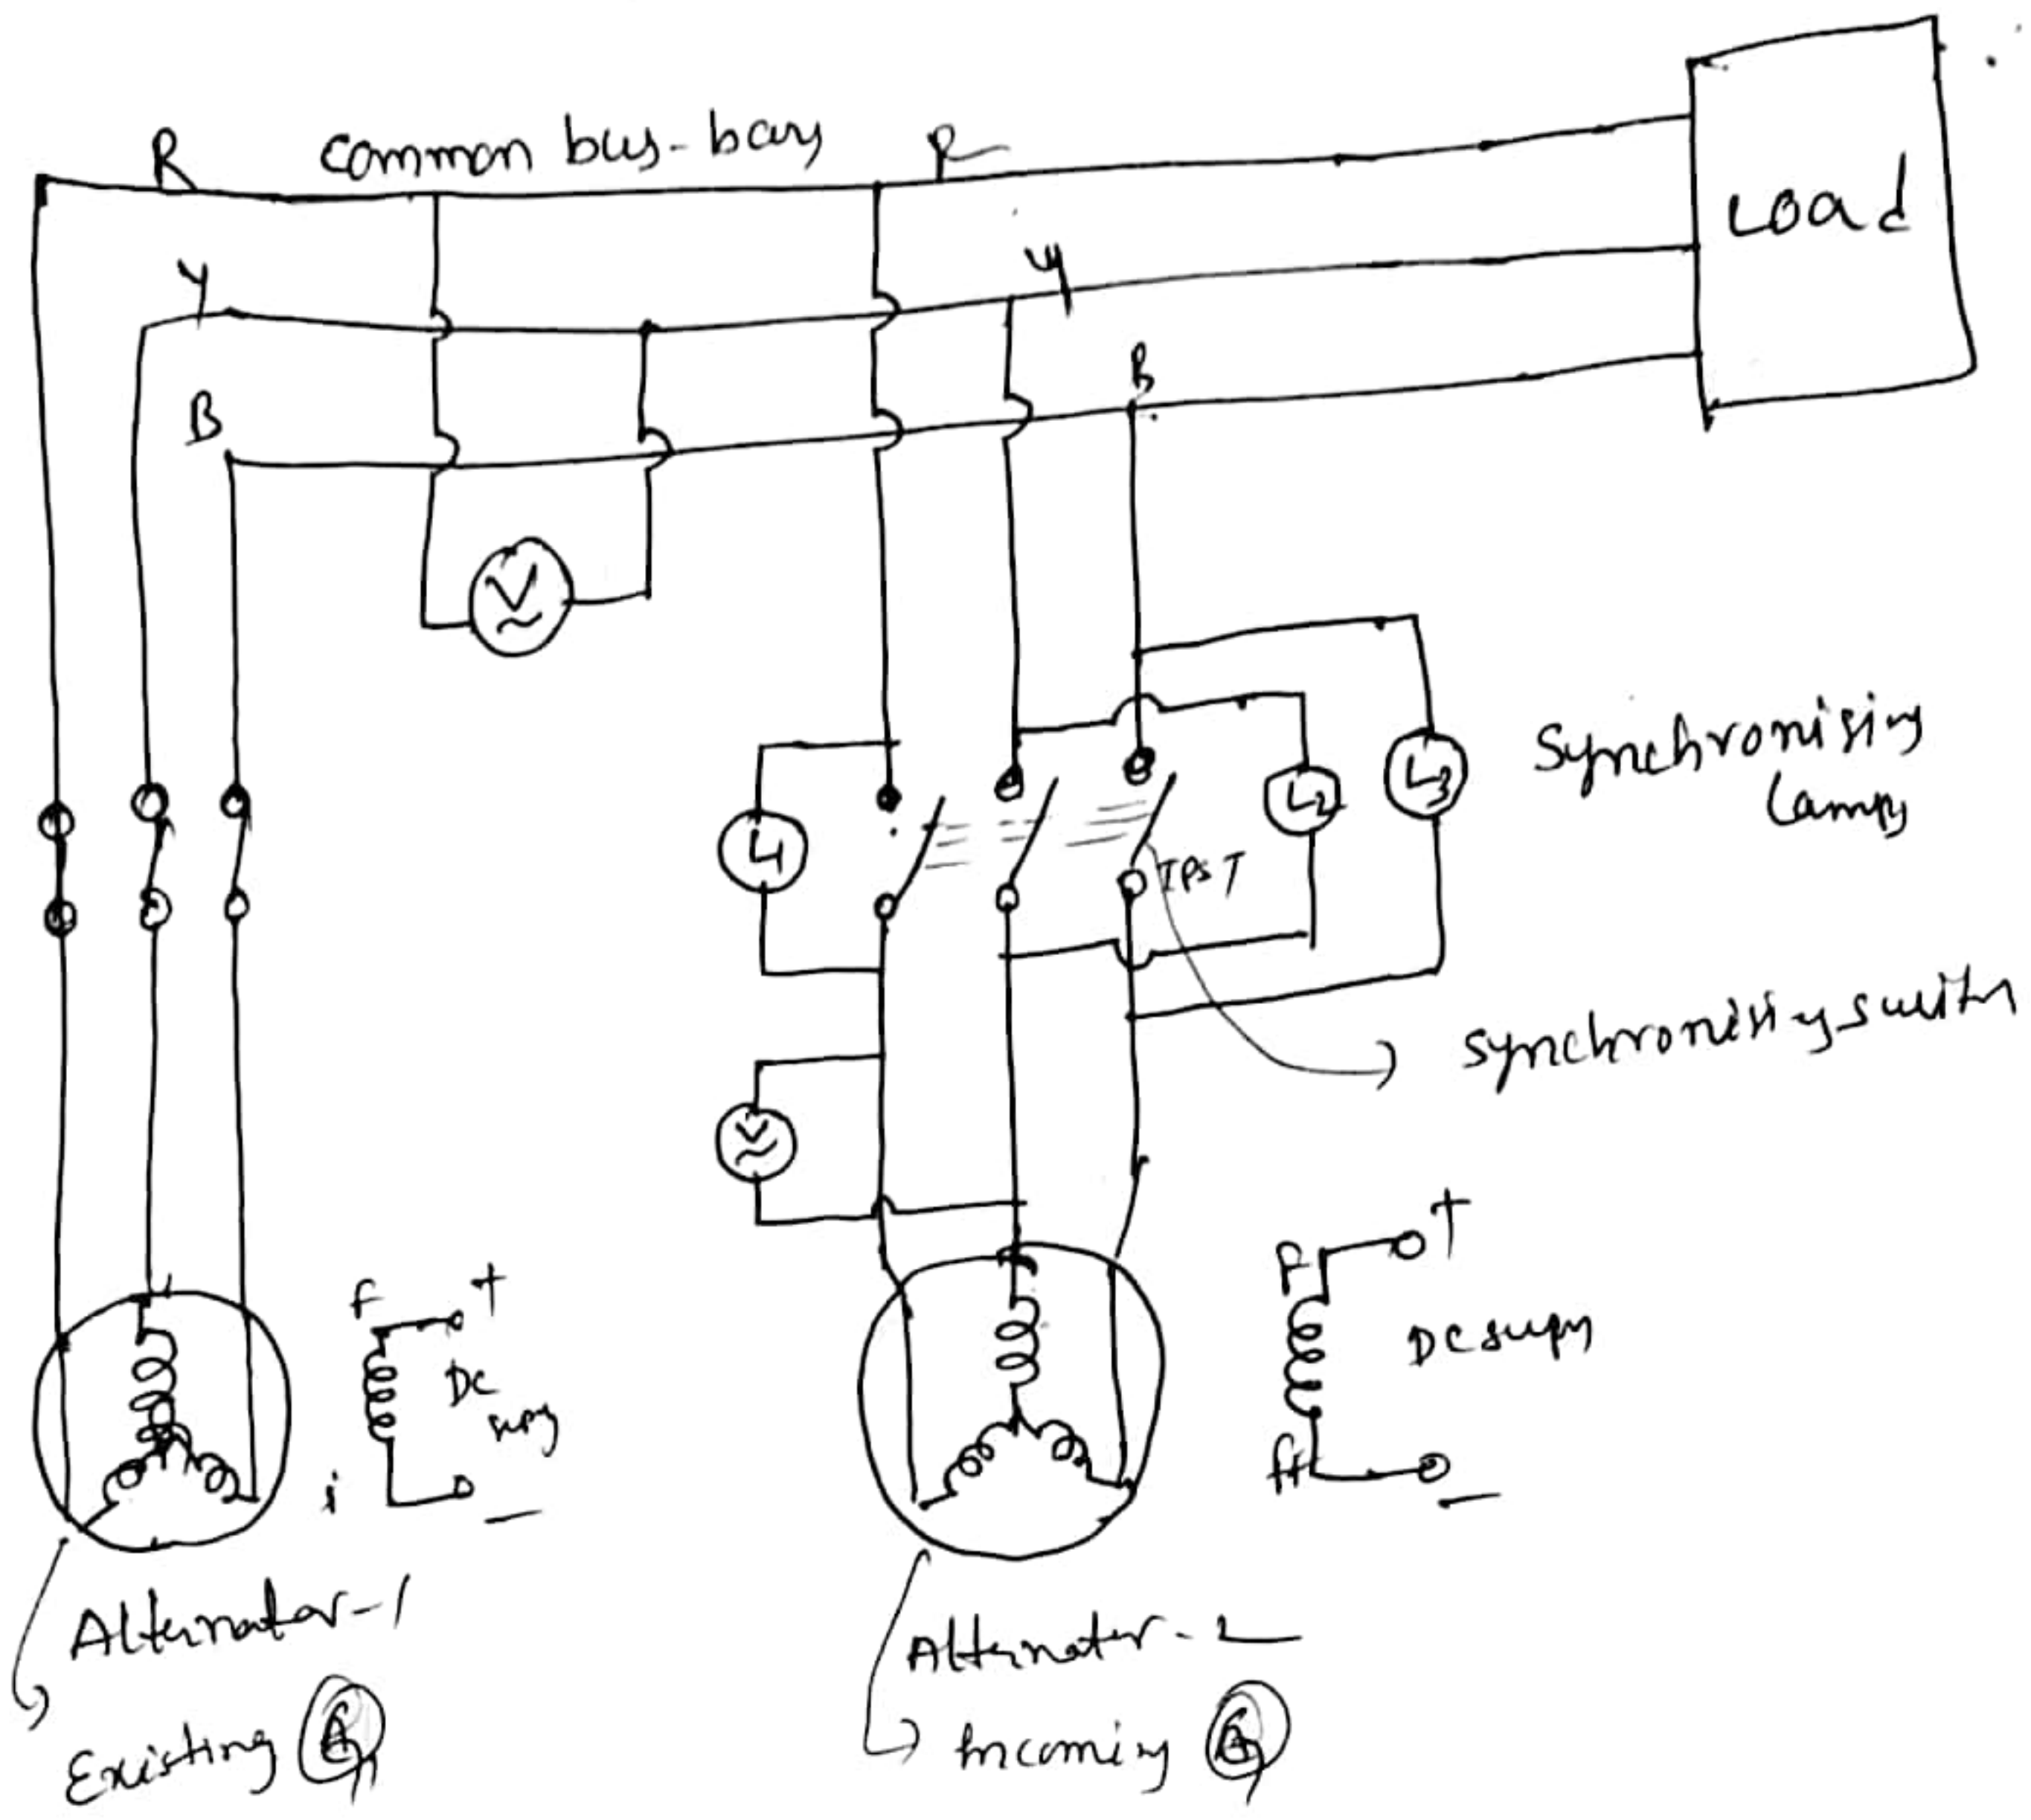 R common bus-bars R
Y Y
B B
Load
V
L1
L2
L3
Synchronising
lamps
TPST
Synchronising switch
V
F +
DC
supy
-
F +
DC supy
-
Alternator-1
Existing G
Alternator-2
Incoming G